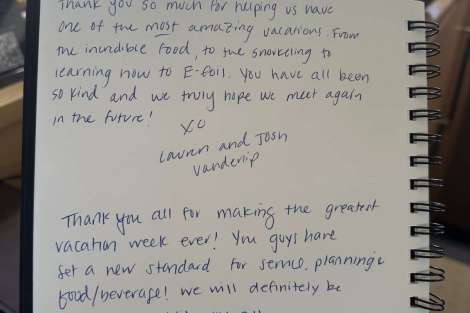 Thank you so much for helping us have
one of the most amazing vacations. From
the incredible food, to the snorkeling to
learning how to E-foil. You have all been
so kind and we truly hope we meet again
in the future!
XO
Lauren and Josh
Vanderlip
Thank you all for making the greatest
vacation week ever! You guys have
set a new standard for service, planning &
food/beverage! We will definitely be